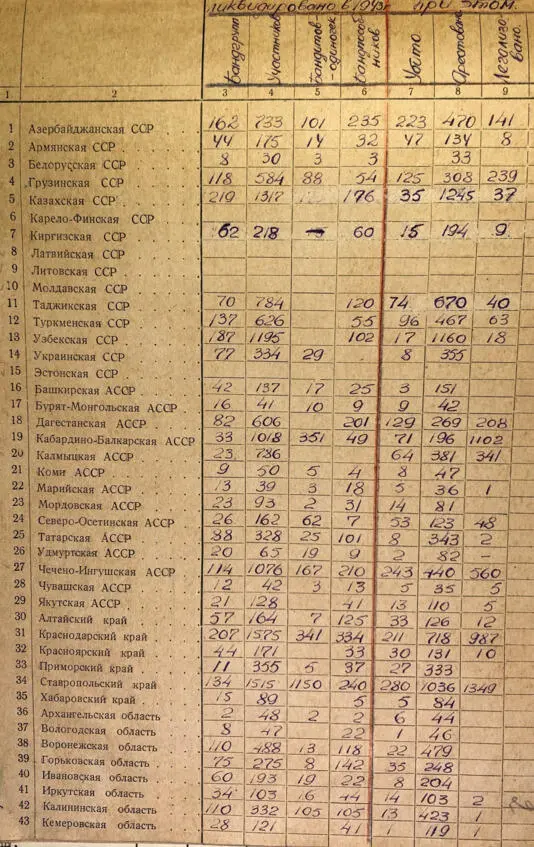 ликвидировано в 1943г. при этом:
Бандгрупп Участников Бандитов-одиночек Бандпособников Убито Арестовано Легализовано.
1 2 3 4 5 6 7 8 9
1 Азербайджанская ССР 162 733 101 235 223 470 141
2 Армянская ССР 44 175 14 32 47 134 8
3 Белорусская ССР 8 30 3 3 33
4 Грузинская ССР 118 584 88 54 125 308 239
5 Казахская ССР 219 1317 176 35 1245 37
6 Карело-Финская ССР
7 Киргизская ССР 62 218 60 15 194 9
8 Латвийская ССР
9 Литовская ССР
10 Молдавская ССР
11 Таджикская ССР 70 784 120 74 670 40
12 Туркменская ССР 137 626 55 96 467 63
13 Узбекская ССР 187 1195 102 17 1160 18
14 Украинская ССР 77 334 29 8 355
15 Эстонская ССР
16 Башкирская АССР 42 137 17 25 3 151
17 Бурят-Монгольская АССР 16 41 10 9 9 42
18 Дагестанская АССР 82 606 201 129 269 208
19 Кабардино-Балкарская АССР 33 1018 351 49 71 196 1102
20 Калмыцкая АССР 23 786 64 381 341
21 Коми АССР 9 50 5 4 8 47
22 Марийская АССР 13 39 3 18 5 36 1
23 Мордовская АССР 23 93 2 31 14 81
24 Северо-Осетинская АССР 26 162 62 7 53 123 48
25 Татарская АССР 88 328 25 101 8 343 2
26 Удмуртская АССР 20 65 19 9 2 82 -
27 Чечено-Ингушская АССР 114 1076 167 210 243 440 560
28 Чувашская АССР 12 42 3 13 5 35 5
29 Якутская АССР 21 128 41 13 110 5
30 Алтайский край 57 164 7 125 33 126 12
31 Краснодарский край 207 1575 341 334 211 718 987
32 Красноярский край 44 171 33 30 131 10
33 Приморский край 11 355 5 37 27 333
34 Ставропольский край 134 1515 1150 240 280 1036 1349
35 Хабаровский край 15 89 5 5 84
36 Архангельская область 2 48 2 2 6 44
37 Вологодская область 8 47 22 1 46
38 Воронежская область 110 488 13 118 22 479
39 Горьковская область 75 275 8 142 35 248
40 Ивановская область 60 193 19 22 8 204
41 Иркутская область 34 103 16 44 14 103 2
42 Калининская область 110 332 105 105 13 423 1
43 Кемеровская область 28 121 41 1 119 1